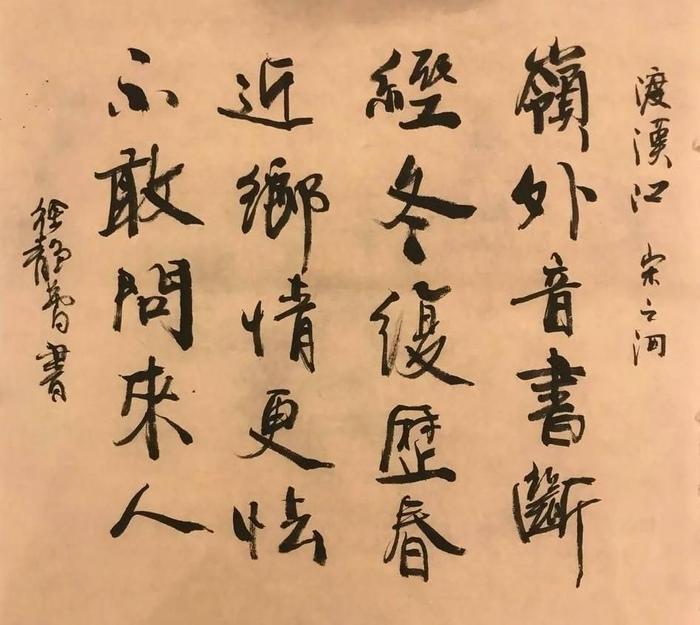 渡漢江 宋之问
嶺外音書斷
經冬復歷春
近鄉情更怯
不敢問來人
徐靜書